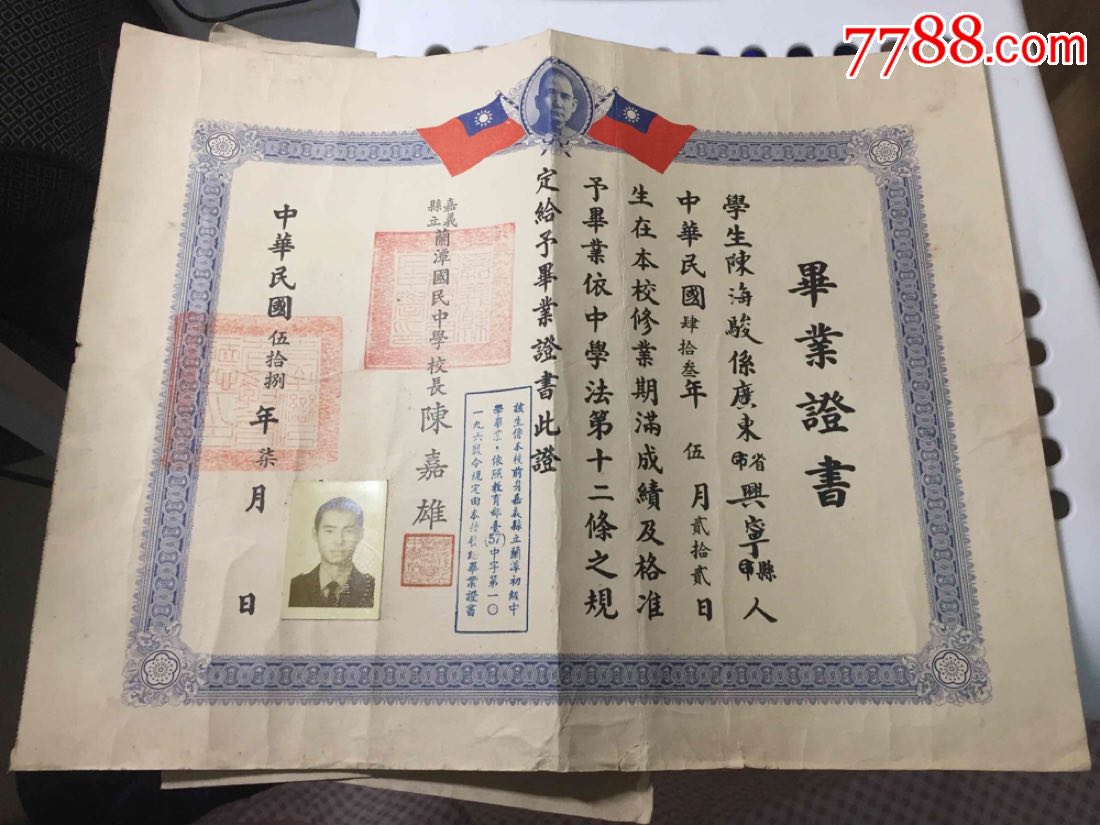 7788.com
畢業證書
學生陳海駿係廣東省市興寧縣市人
中華民國肆拾叁年伍月貳拾貳日
生在本校修業期滿成績及格准
予畢業依中學法第十二條之規
定給予畢業證書此證
該生係本校前身嘉義縣立蘭潭初級中
學畢業,依照教育部臺(57)中字第一〇
一九六號令規定由本校發給畢業證書
嘉義縣立蘭潭國民中學校長陳嘉雄
中華民國伍拾捌年柒月日